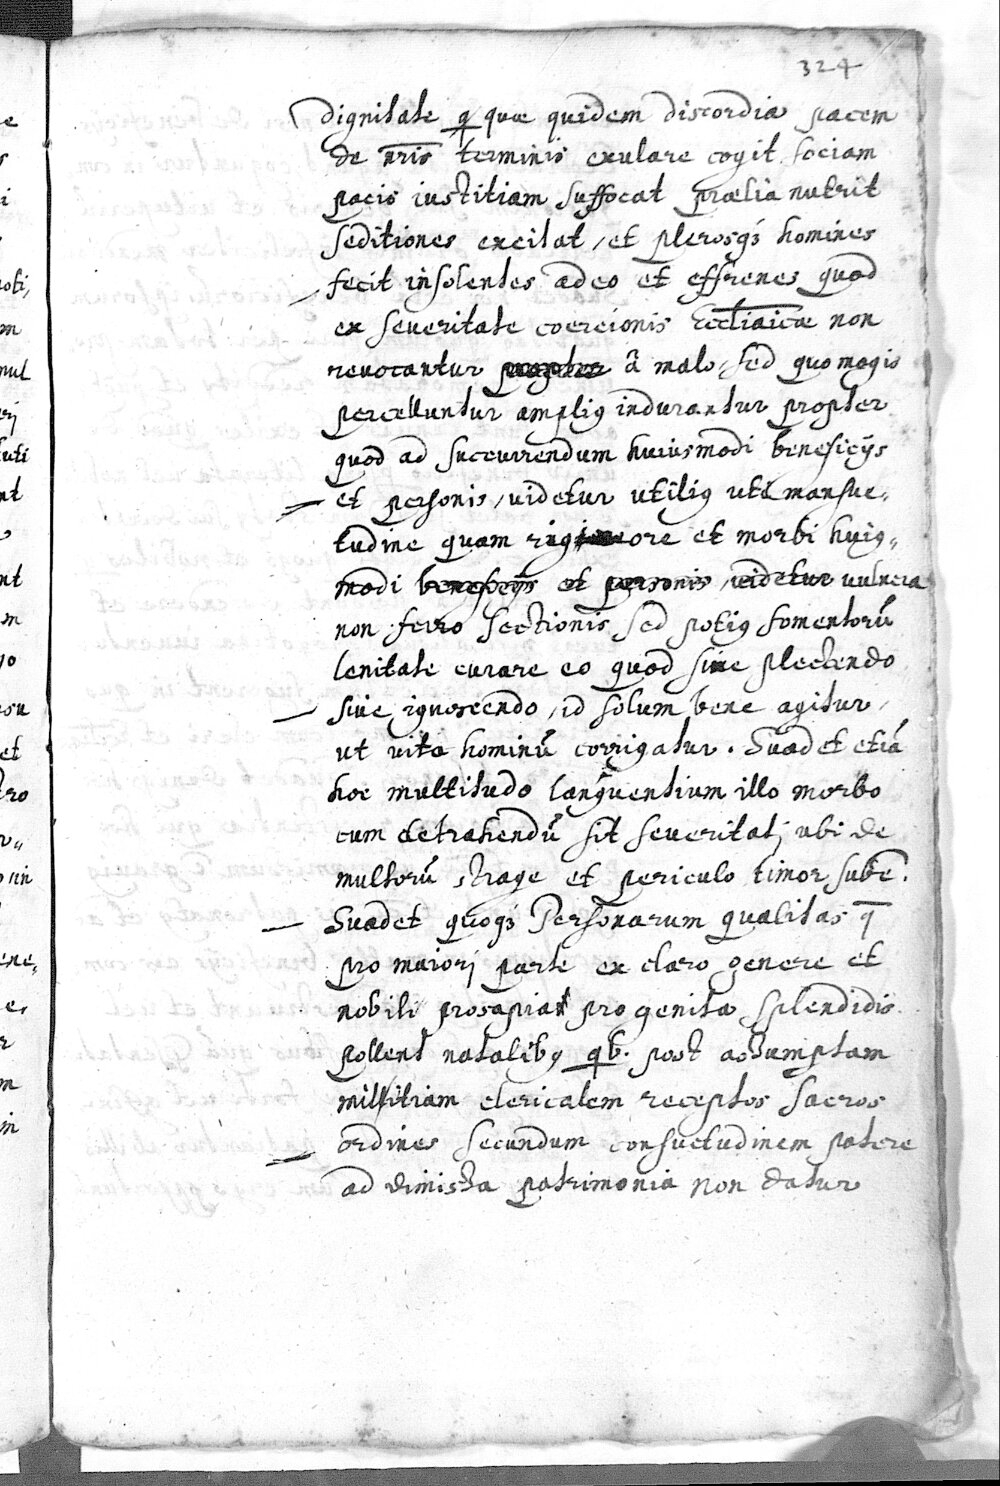 324
dignitate q̱ quæ quidem discordia pacem
de nr̄is terminis exulare cogit, sociam
pacis iustitiam suffocat prælia nutrit
seditiones excitat, et plerosq3 homines
fecit insolentes adeo et effrenes quod
ex seueritate coercionis Eccl̄iaicæ non
reuocantur propter ā malo, sed quo magis
percelluntur ampliꝰ indurantur propter
quod ad succurrendum huiusmodi beneficijs
et personis, uidetur utiliꝰ uti mansue„
tudine quam rigore et morbi huiꝰ„
modi beneficijs et personis, uidetur uulnera
non ferro sectionis sed potiꝰ fomentorū
lenitate curare eo quod siue plectendo
siue ignoscendo, id solum bene agitur,
ut vita hominū corrigatur. Suadet etiā
hoc multitudo languentium illo morbo
cum detrahendū sit seueritati, ubi de
multorū strage et periculo timor sub̄e.
Suadet quoq3 Personarum qualitas q̄
pro maiori parte ex claro genere et
nobili prosapia progenita splendidis
pollent natalibꝰ qb. post assumptam
militiam clericalem receptos sacros
ordines secundum consuetudinem patere
ad dimissa patrimonia non datur